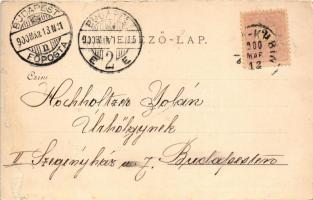 BUDAPEST
900 MAR 13 N 11
D
FŐPOSTA
2
LEVELEZŐ-LAP.
900
MAR
12
Czim
Hochholtzer Zolán
Úrhölgynek
II Szegényház u 7. Budapesten